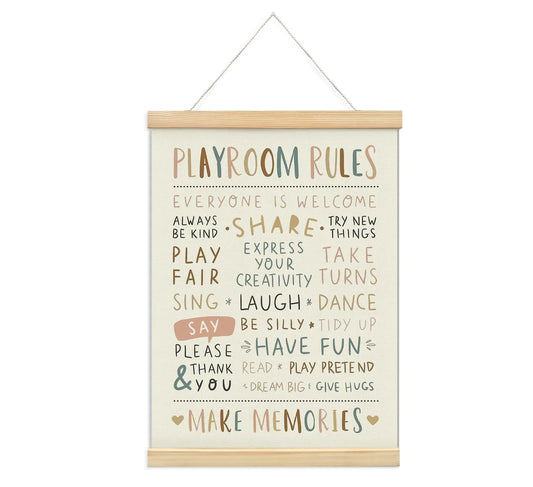 PLAYROOM RULES
EVERYONE IS WELCOME
ALWAYS BE KIND
SHARE
TRY NEW THINGS
PLAY FAIR
EXPRESS YOUR CREATIVITY
TAKE TURNS
SING * LAUGH * DANCE
SAY PLEASE & THANK YOU
BE SILLY * TIDY UP
HAVE FUN
READ * PLAY PRETEND
DREAM BIG * GIVE HUGS
MAKE MEMORIES